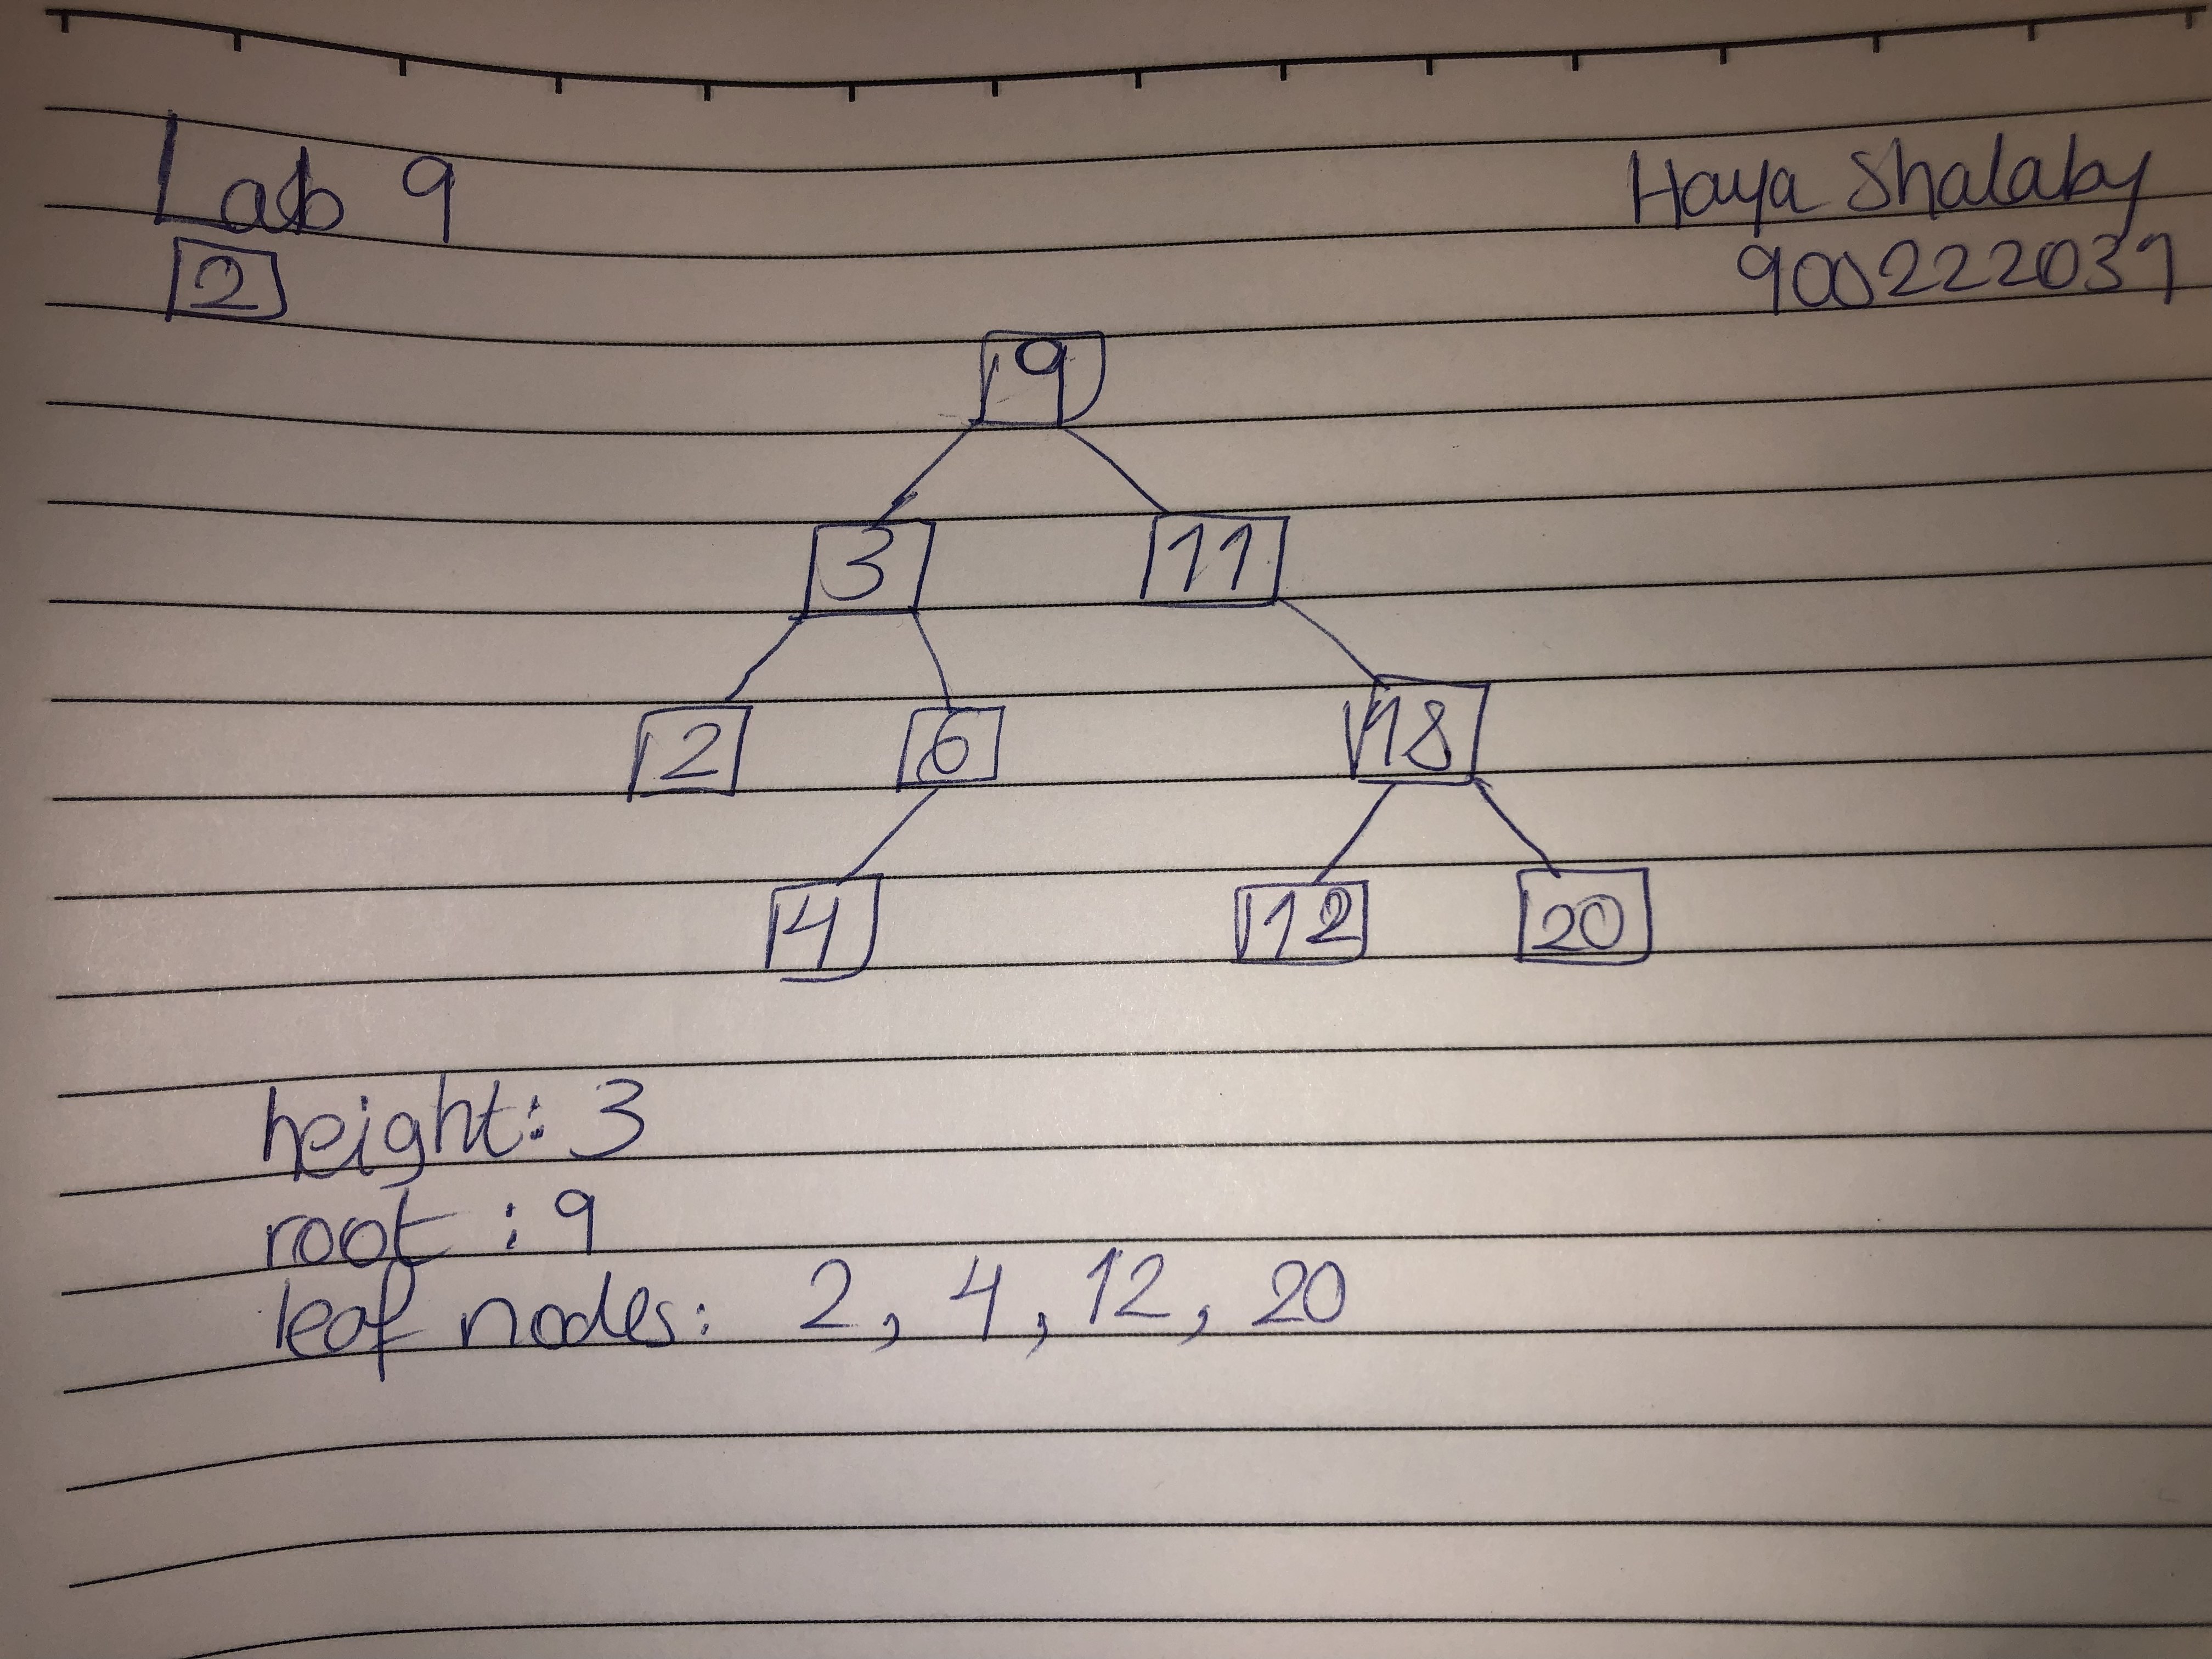 Lab 9
Haya Shalaby
2
900222031
9
3 11
2 6 18
4 12 20
height: 3
root : 9
leaf nodes: 2, 4, 12, 20